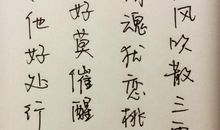 风吹散三
魂犹恋桃
好莫催醒
他好处行